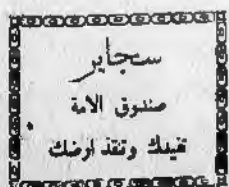 سجاير
صندوق الامة
تفيدك وتنقذ ارضك